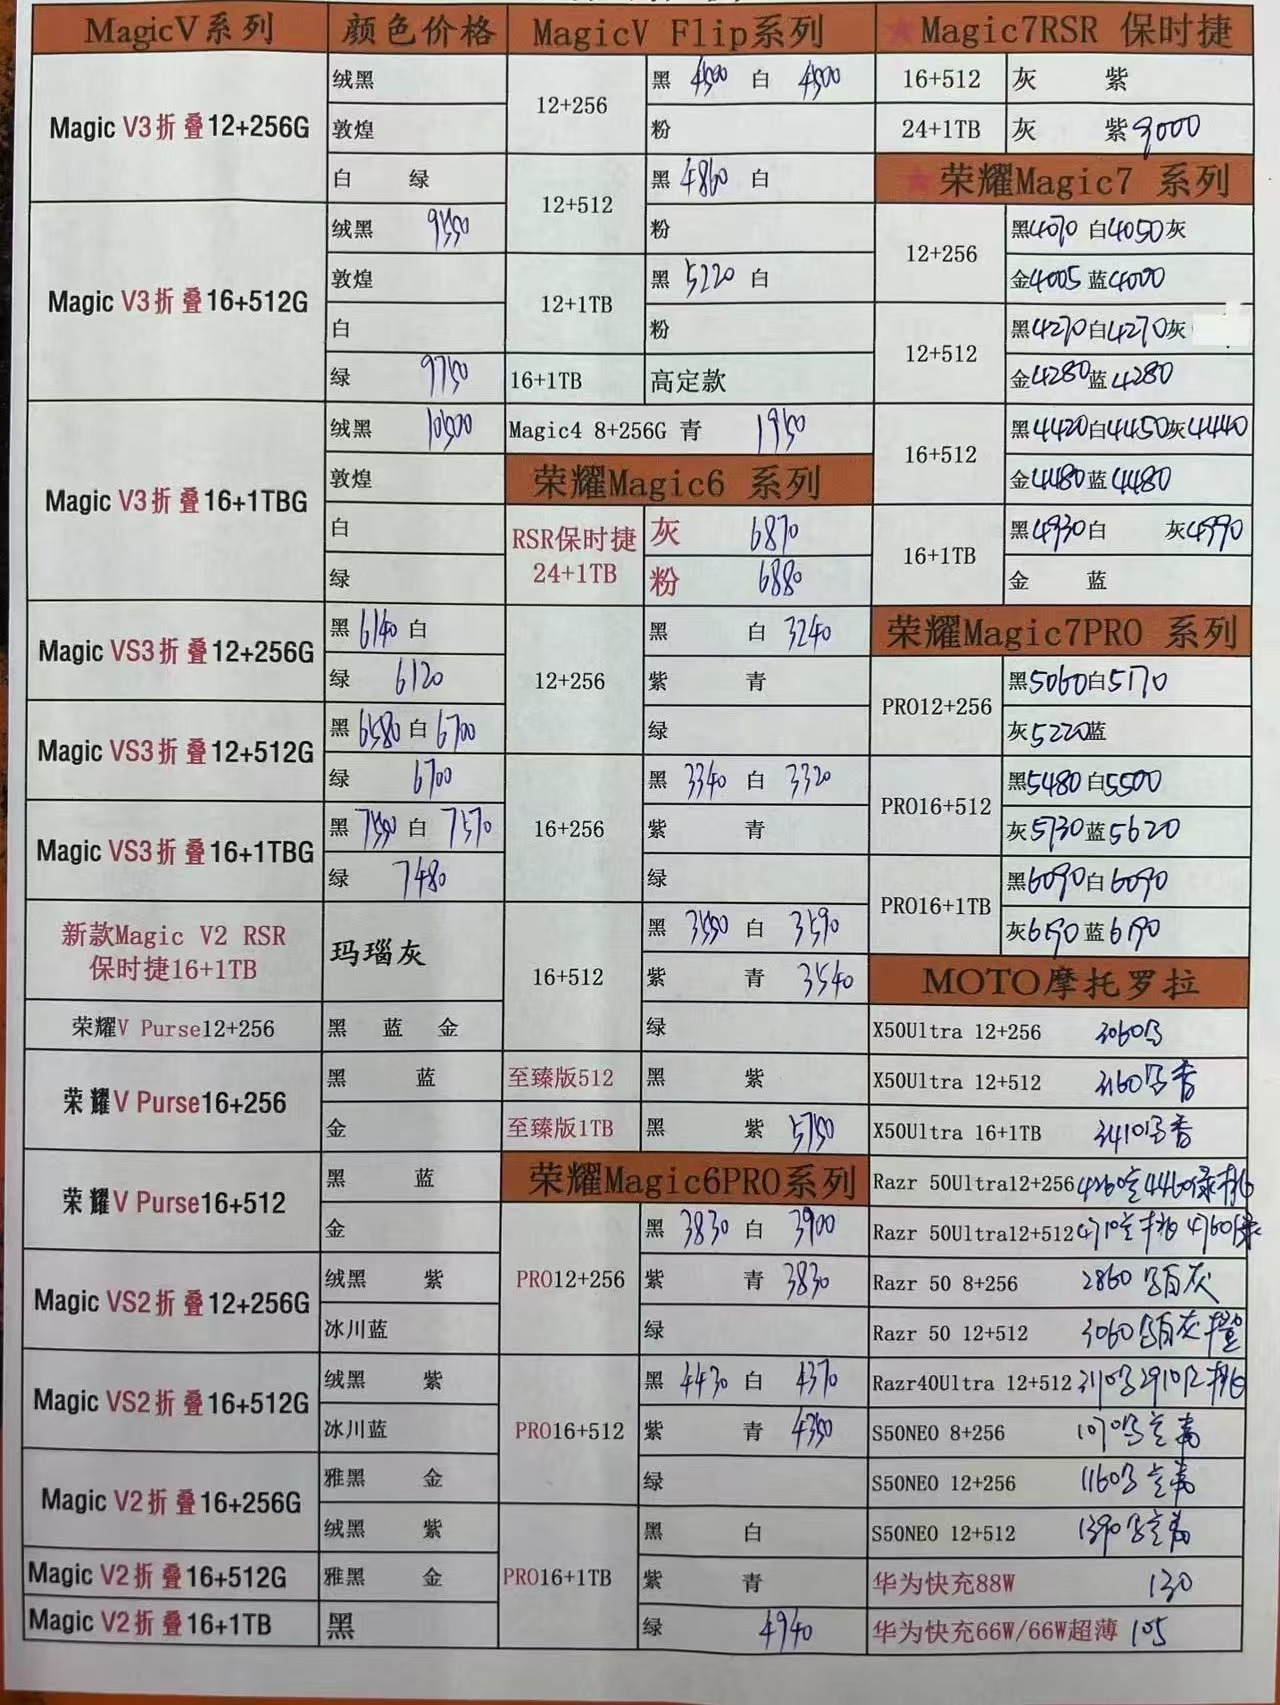 MagicV系列 颜色价格
Magic V3折叠12+256G
绒黑
敦煌
白 绿
Magic V3折叠16+512G
绒黑 9550
敦煌
白
绿 9750
Magic V3折叠16+1TBG
绒黑 10500
敦煌
白
绿
Magic VS3折叠12+256G
黑 6140 白
绿 6120
Magic VS3折叠12+512G
黑 6580 白 6700
绿 6700
Magic VS3折叠16+1TBG
黑 7550 白 7570
绿 7480
新款Magic V2 RSR
保时捷16+1TB
玛瑙灰
荣耀V Purse12+256 黑 蓝 金
荣耀V Purse16+256
黑 蓝
金
荣耀V Purse16+512
黑 蓝
金
Magic VS2折叠12+256G
绒黑 紫
冰川蓝
Magic VS2折叠16+512G
绒黑 紫
冰川蓝
Magic V2折叠16+256G
雅黑 金
绒黑 紫
Magic V2折叠16+512G 雅黑 金
Magic V2折叠16+1TB 黑
MagicV Flip系列
12+256
黑 4500 白 4500
粉
12+512
黑 4860 白
粉
12+1TB
黑 5220 白
粉
16+1TB 高定款
Magic4 8+256G 青 1950
荣耀Magic6 系列
RSR保时捷
24+1TB
灰 6870
粉 6880
12+256
黑 白 3240
紫 青
绿
16+256
黑 3340 白 3320
紫 青
绿
16+512
黑 3550 白 3590
紫 青 3540
绿
至臻版512 黑 紫
至臻版1TB 黑 紫 5750
荣耀Magic6PRO系列
PRO12+256
黑 3830 白 3900
紫 青 3830
绿
PRO16+512
黑 4430 白 4370
紫 青 4350
绿
PRO16+1TB
黑 白
紫 青
绿 4940
★Magic7RSR 保时捷
16+512 灰 紫
24+1TB 灰 紫9000
★荣耀Magic7 系列
12+256
黑4070 白4050灰
金4005蓝4000
12+512
黑4270白4270灰
金4280蓝4280
16+512
黑4420白4450灰4440
金4480蓝4480
16+1TB
黑4930白 灰4990
金 蓝
荣耀Magic7PRO 系列
PRO12+256
黑5060白5170
灰5220蓝
PRO16+512
黑5480白5500
灰5730蓝5620
PRO16+1TB
黑6090白6090
灰6190蓝6190
MOTO摩托罗拉
X50Ultra 12+256 3060
X50Ultra 12+512 3160
X50Ultra 16+1TB 3410
Razr 50Ultra12+256 4460
Razr 50Ultra12+512 4710 4760
Razr 50 8+256 2860 灰
Razr 50 12+512 3060 灰
Razr40Ultra 12+512 2910
S50NEO 8+256 1070
S50NEO 12+256 1160
S50NEO 12+512 1390
华为快充88W 130
华为快充66W/66W超薄 105